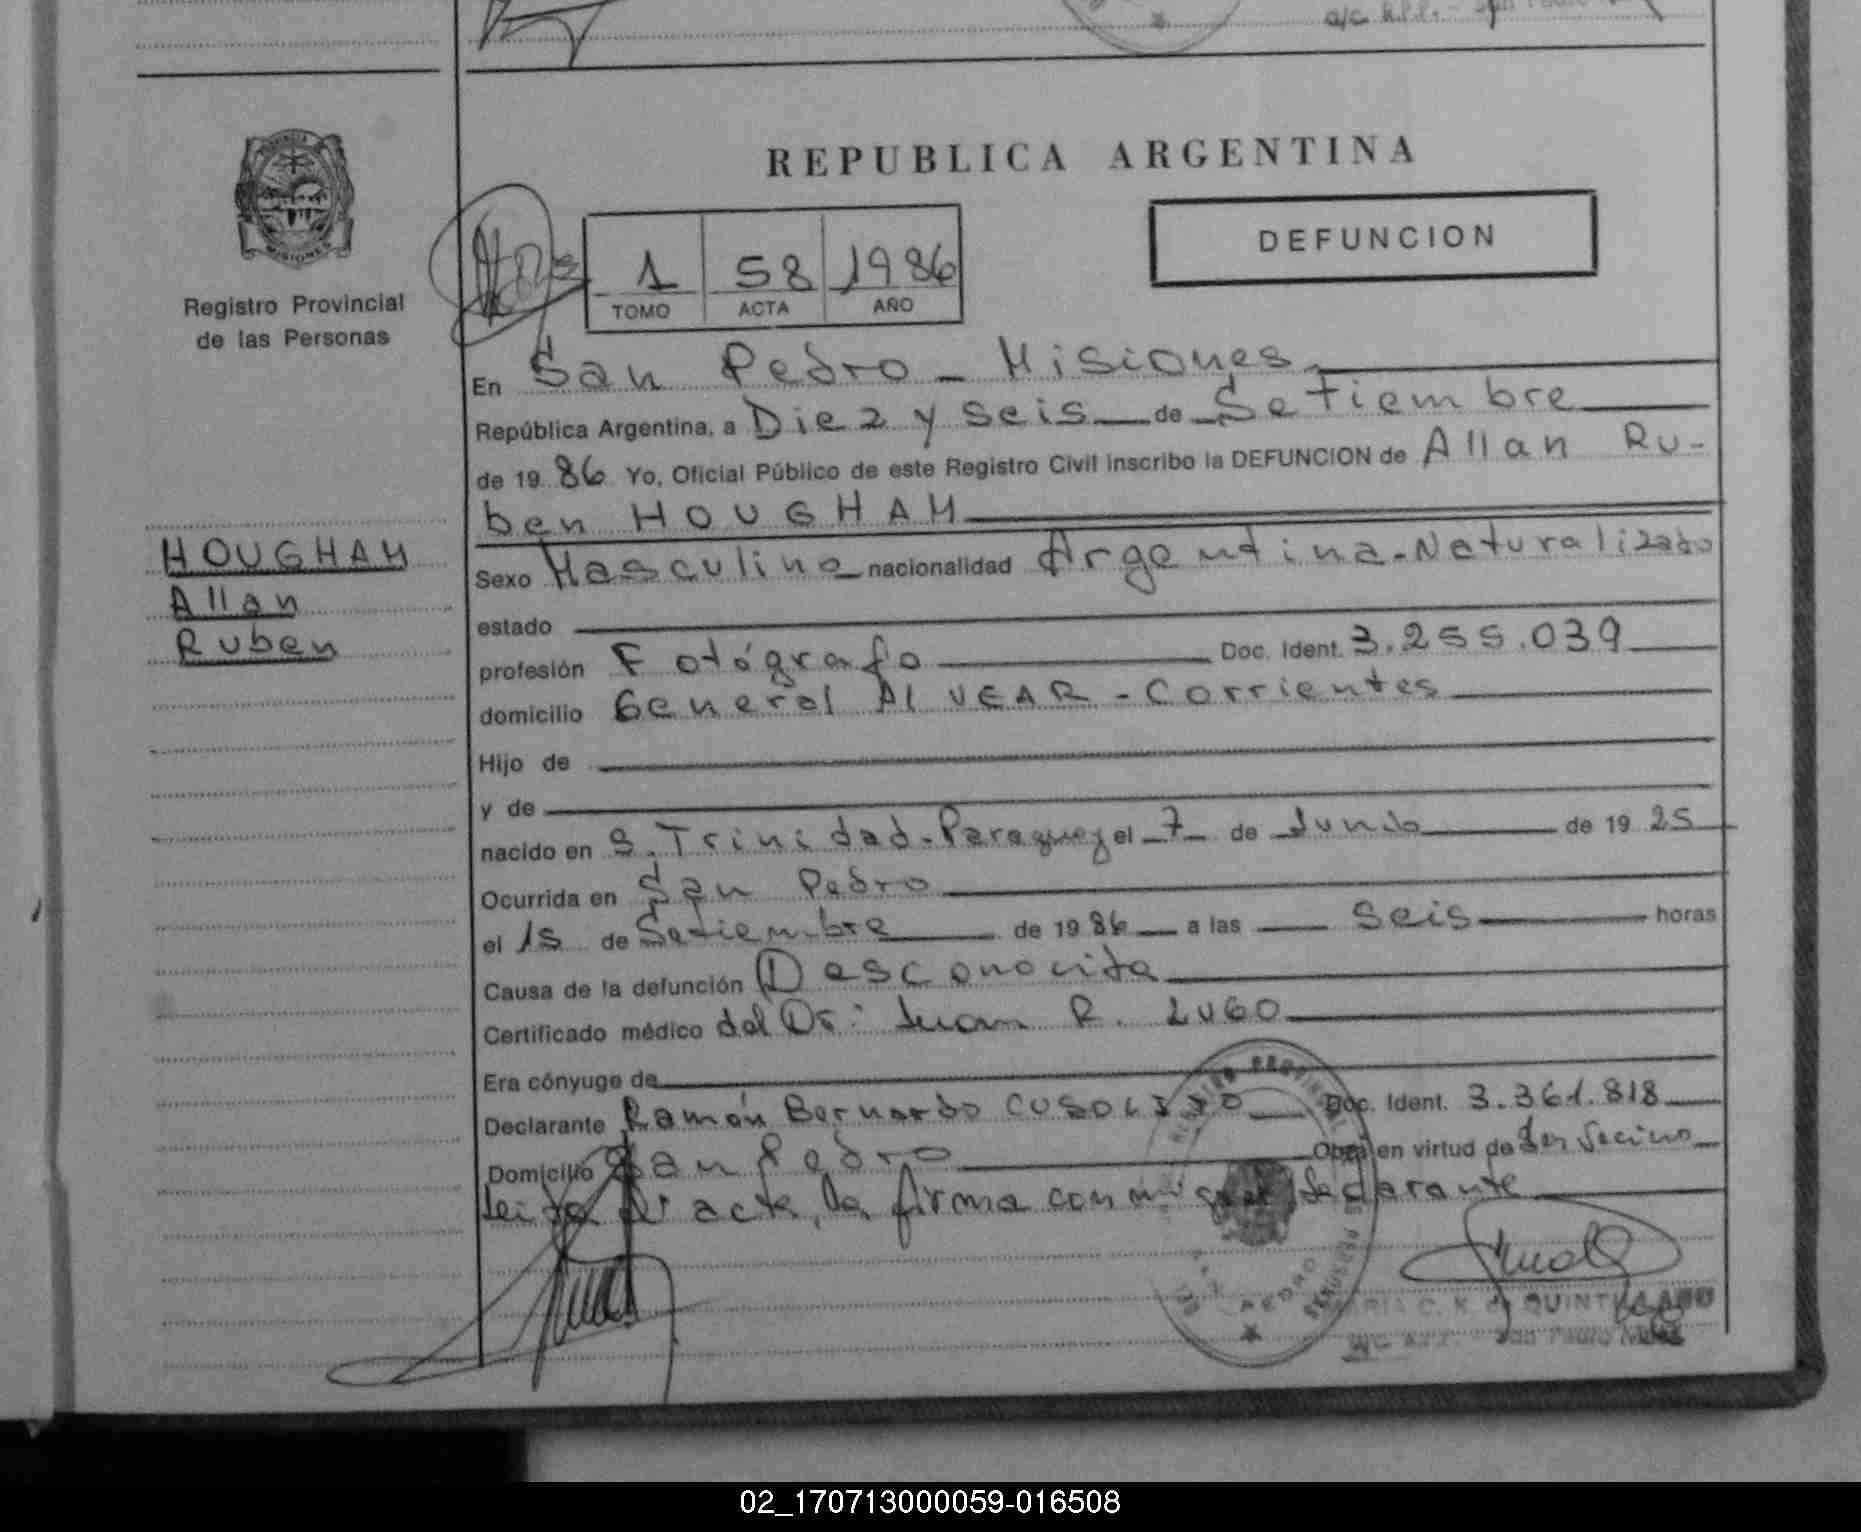 a/c R.P.P. - San Pedro
REPUBLICA ARGENTINA
PROVINCIA
MISIONES
DEFUNCION
1 58 1986
TOMO ACTA AÑO
Registro Provincial
de las Personas
En San Pedro - Misiones
República Argentina, a Diez y seis de Setiembre
de 1986 Yo, Oficial Público de este Registro Civil inscribo la DEFUNCION de Allan Ru-
ben HOUGHAM
HOUGHAM
Allan
Ruben
Sexo Masculino nacionalidad Argentina-Naturalizado
estado
profesión Fotógrafo Doc. Ident. 3.255.039
domicilio General AlVEAR - Corrientes
Hijo de
y de
nacido en S. Trinidad-Paraguay el 7 de Junio de 1925
Ocurrida en San Pedro
el 15 de Setiembre de 1986 a las seis horas
Causa de la defunción Desconocita
Certificado médico del Dr: Juan R. LUGO
Era cónyuge de
Declarante Ramón Bernardo Doc. Ident. 3.361.818
Domicilio San Pedro Obra en virtud de Ser Vecino
leida el acta, la firma conmigo el declarante
REGISTRO PROVINCIAL
SAN PEDRO
MARIA C. K. de QUINTANA
a/c R.P.P. - San Pedro Mnes.
02_170713000059-016508